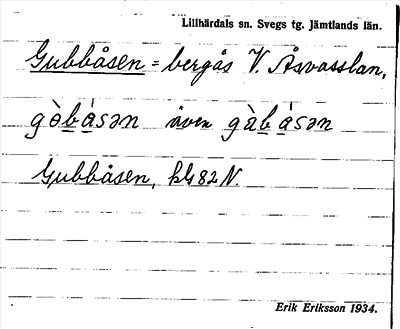 Lillhärdals sn. Svegs tg. Jämtlands län.
Gubbåsen = bergås V. Åsvasslan,
gòbǻsən även gàbǻsən
Gubbåsen, bl 82 N.
Erik Eriksson 1934.